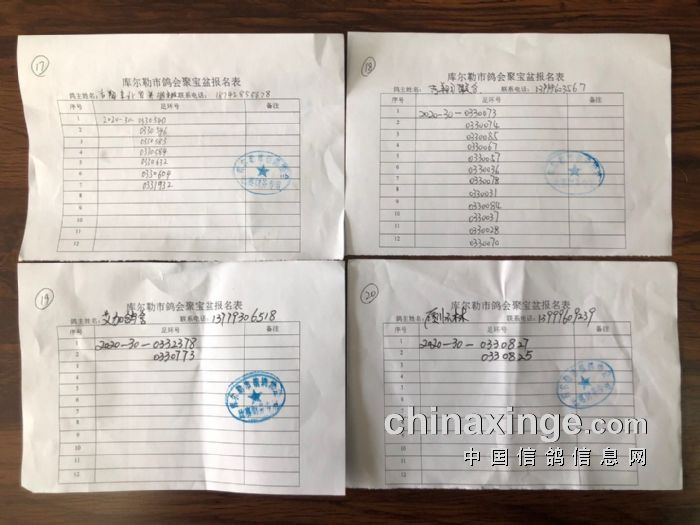 17
库尔勒市鸽会聚宝盆报名表
鸽主姓名： 联系电话：
序号 足环号 备注
1 2020-30-0330540
2 0330546
3 0330583
4 0330584
5 0330632
6 0330604
7 0331932
8
9
10
11
12
18
库尔勒市鸽会聚宝盆报名表
鸽主姓名： 联系电话：13999623567
序号 足环号 备注
1 2020-30-0330073
2 0330074
3 0330035
4 0330067
5 0330057
6 0330036
7 0330078
8 0330031
9 0330084
10 0330037
11 0330028
12 0330070
19
库尔勒市鸽会聚宝盆报名表
鸽主姓名：艾加鸽舍 联系电话：13999306518
序号 足环号 备注
1 2020-30-0332378
2 0330773
3
4
5
6
7
8
9
10
11
12
20
库尔勒市鸽会聚宝盆报名表
鸽主姓名： 联系电话：13999609239
序号 足环号 备注
1 2020-30-0330827
2 0330825
3
4
5
6
7
8
9
10
11
12
chinaxinge.com
中国信鸽信息网